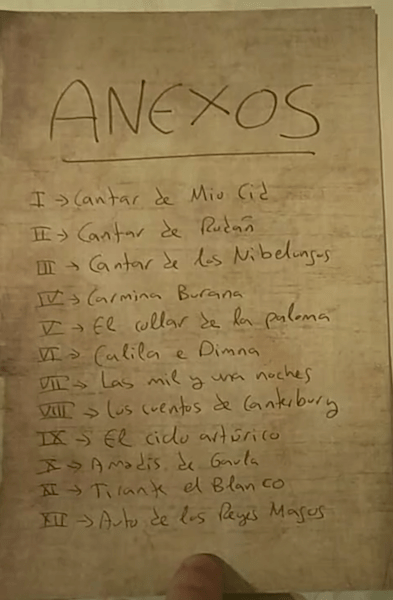 ANEXOS
I → Cantar de Mio Cid
II → Cantar de Roldán
III → Cantar de los Nibelungos
IV → Carmina Burana
V → El collar de la paloma
VI → Calila e Dimna
VII → Las mil y una noches
VIII → Los cuentos de Canterbury
IX → El ciclo artúrico
X → Amadís de Gaula
XI → Tirante el Blanco
XII → Auto de los Reyes Magos